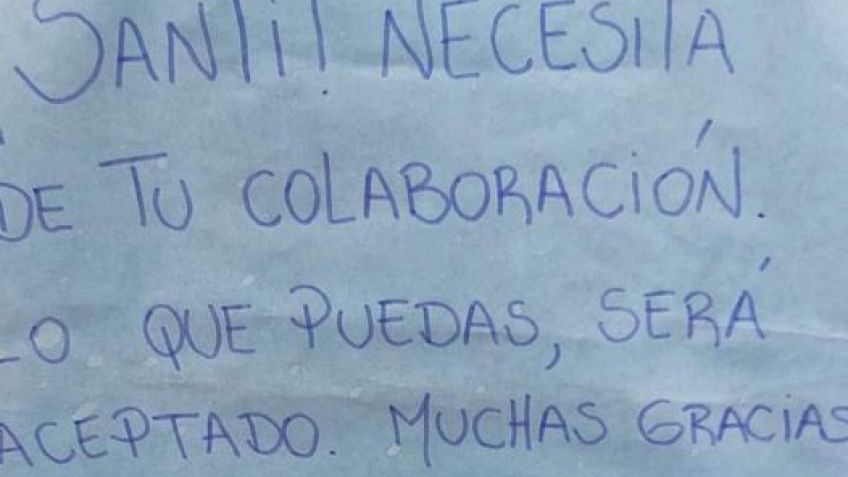 SANTI! NECESITA
DE TU COLABORACIÓN.
LO QUE PUEDAS, SERÁ
ACEPTADO. MUCHAS GRACIAS